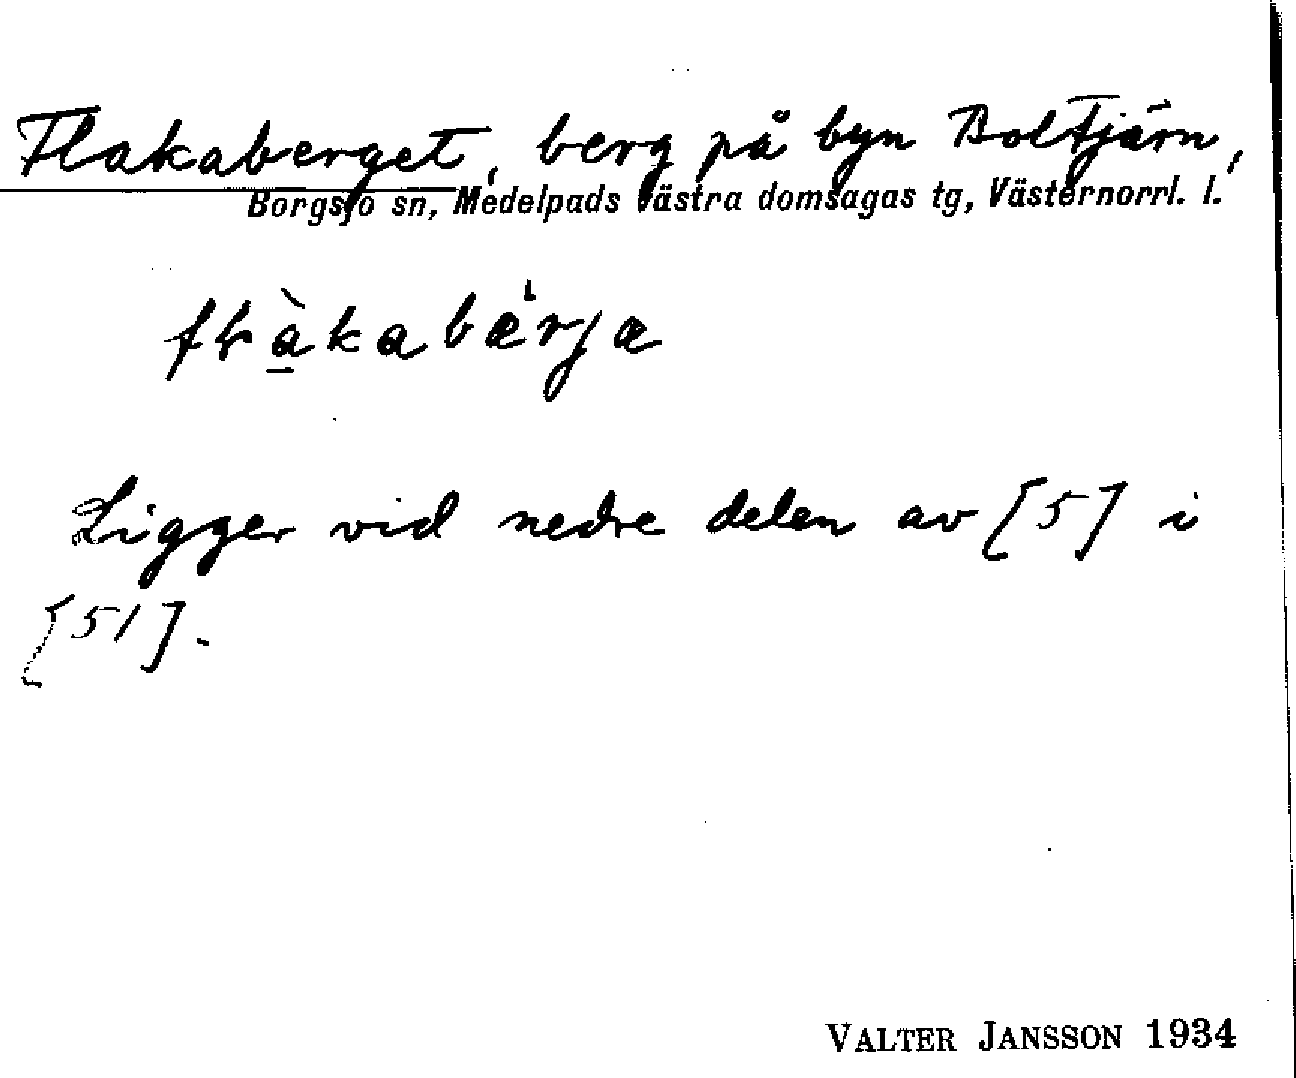 Flakaberget, berg på byn Boltjärn,
Borgsjö sn, Medelpads västra domsagas tg, Västernorrl. l.
Ligger vid nedre delen av [5] i
[51].
VALTER JANSSON 1934